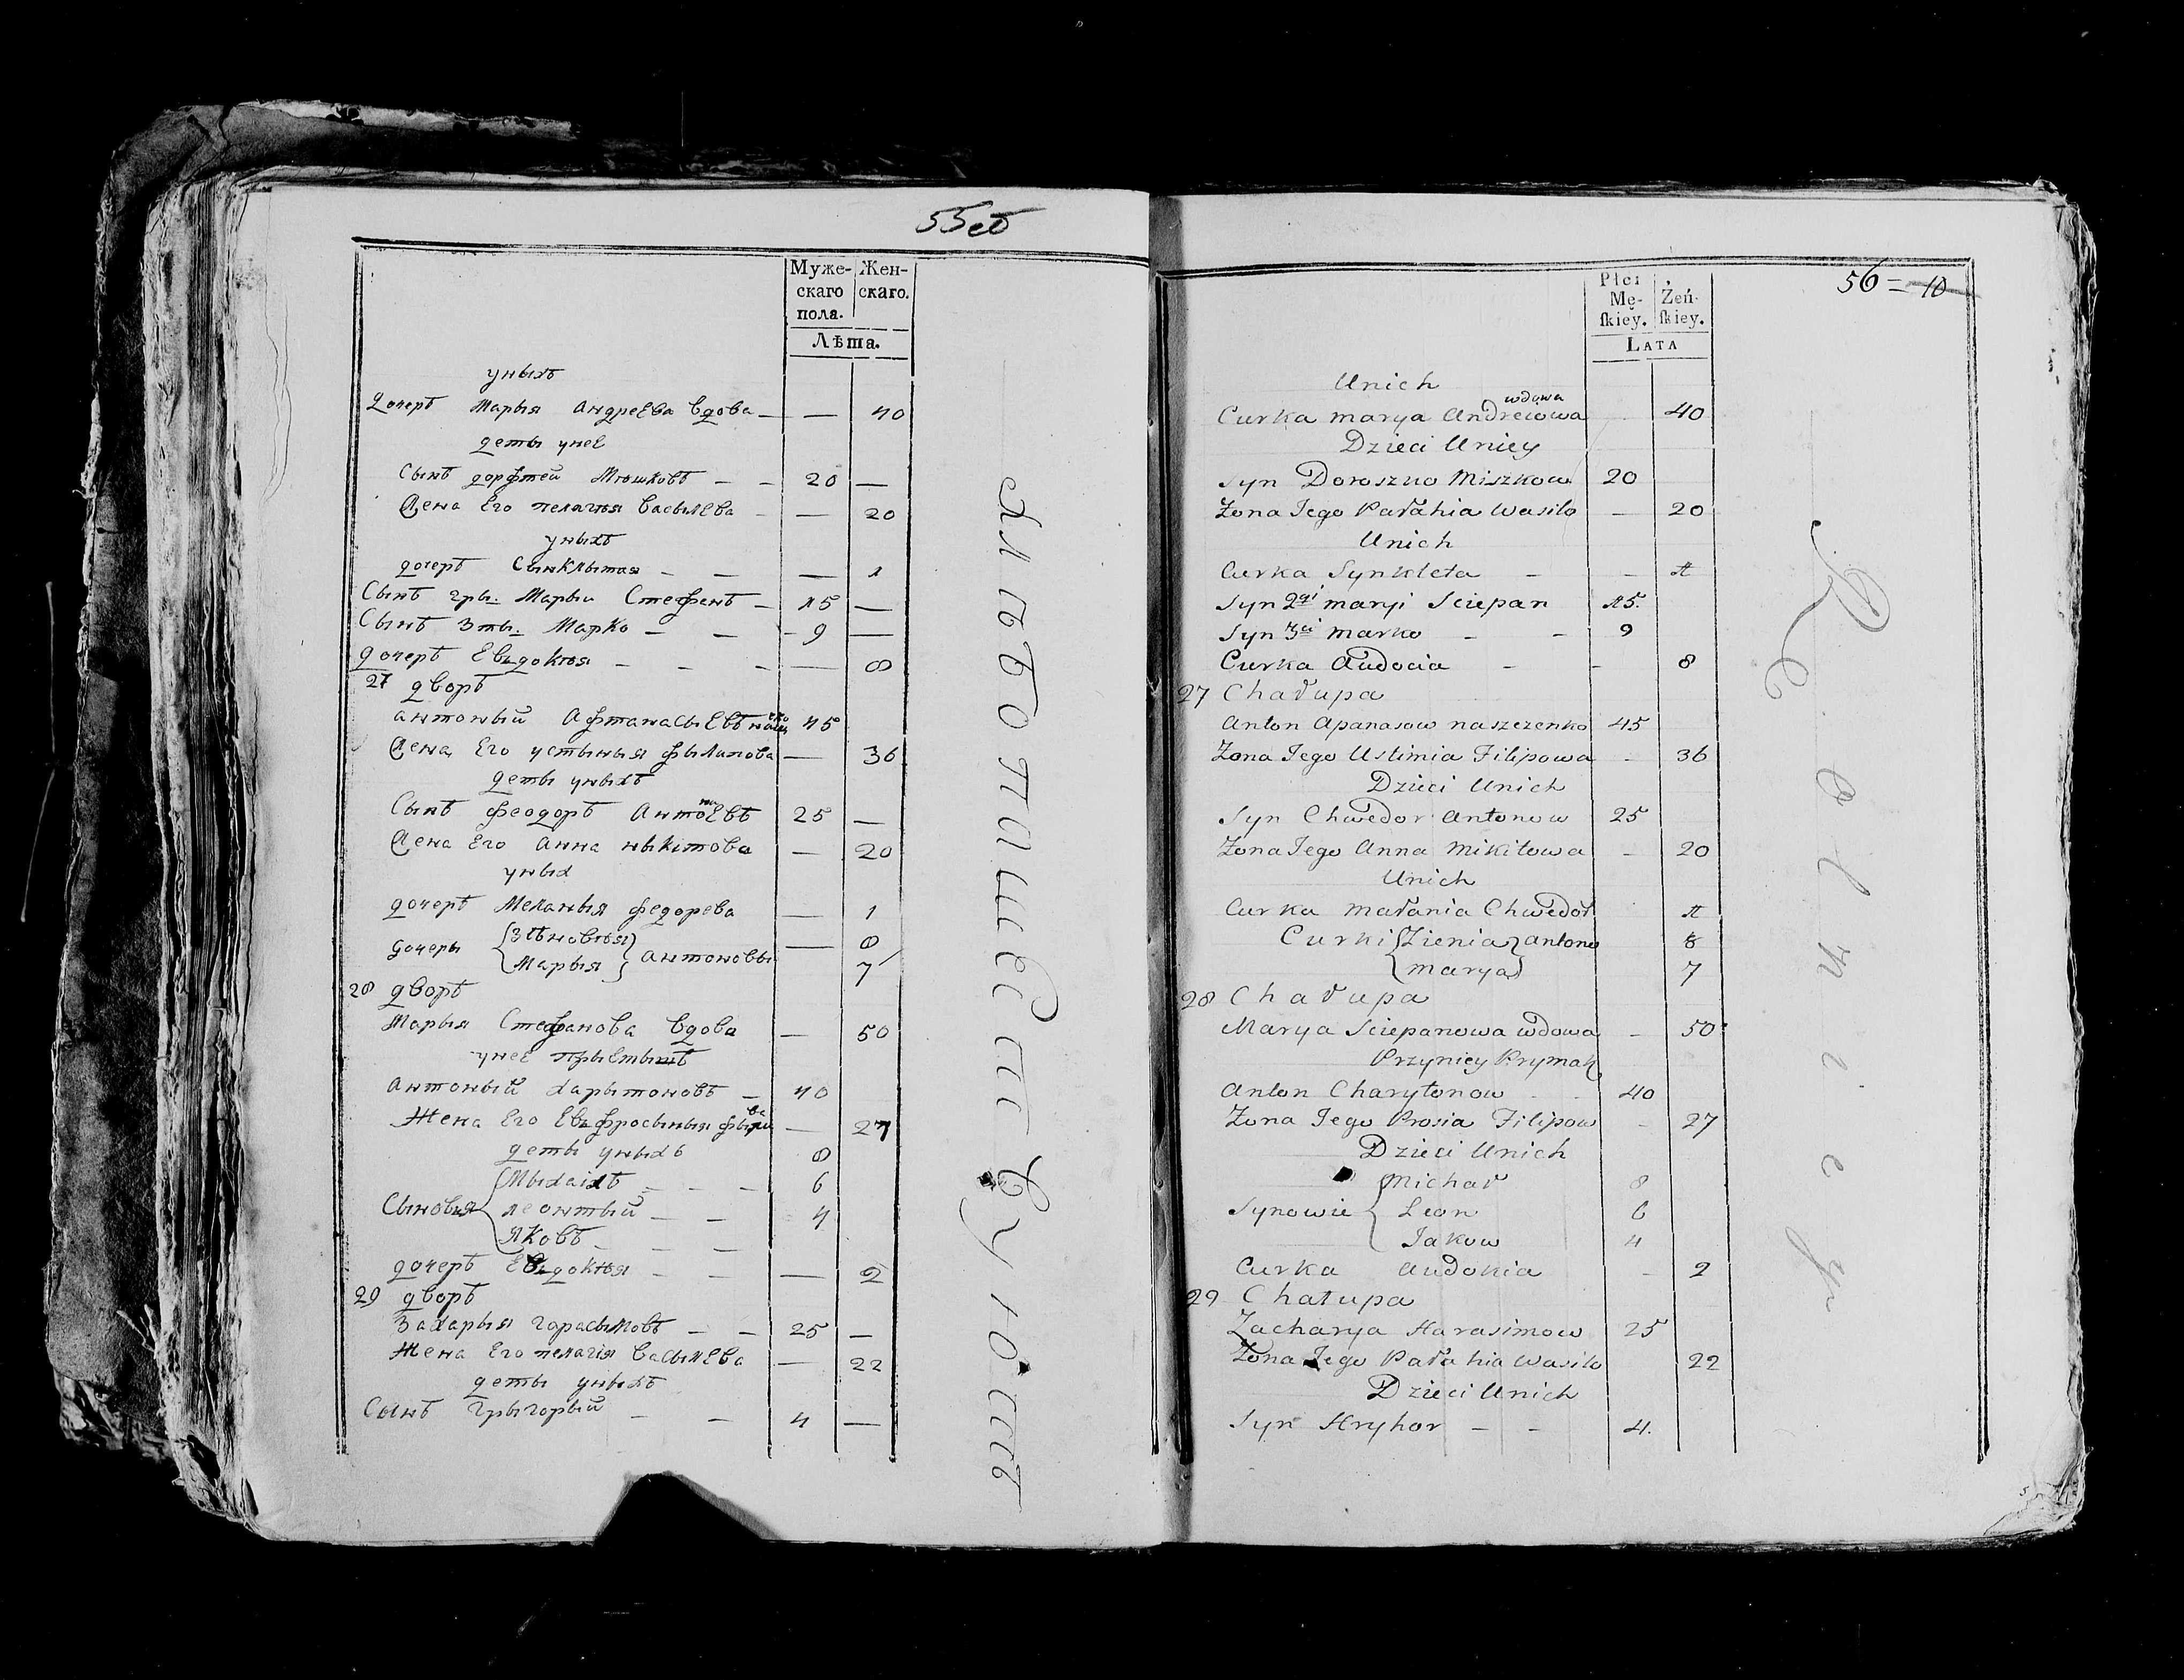 55 об
Муже-скаго пола. Жен-скаго.
Лѣта.
уныхъ
дочерь Марья андреева вдова — — 40
деты унее
Сынъ дорфтей Мюшковъ — — 20 —
Жена Его пелагия Васылева — — 20
уныхъ
дочерь Сынклытая — — — 1
Сынъ гры. Марыи Стефенъ — 15 —
Сынъ 3ты. Марко — — 9 —
дочерь Евъдокия — — — — 8
27 дворъ
антоный Афтанасьевъ 45
Жена Его устынья фылипова — 36
деты уныхъ
Сынъ феодоръ Антоневъ 25 —
Жена Его анна ныкитова — 20
уных
дочерь Меланья федорева — 1
дочеры {Зѣновѣя} — 8
{Марья} антоновы 7
28 дворъ
Марья Стефанова вдова — 50
унее прыемышъ
антоный харытоновъ — 40
Жена Его Евъфросынья — 27
деты уныхъ 8
{Мыхаілъ — — — 6
Сыновья { леонтый — — 4
{ Яковъ — — —
дочерь Евъдокия — — — 2
29 дворъ
Захарыя гарасымовъ — — 25 —
Жена Его пелагія Васылева — 22
деты уныхъ
Сынъ Грыгорый — — 4 —
Хлѣбопашествуютъ
56 = 10
Płci Mę-ſkiey. Żeń-ſkiey.
Lata
Unich
wdowa
Curka Marya Andreiowa 40
Dzieci Uniey
Syn Doroszko Miszkow 20
Zona Jego Pałahia Wasilo — 20
Unich
Curka Synkleta — — 1
Syn 2gi maryi Sciepan 15.
Syn 3ci marko — — 9
Curka Audocia — — 8
27 Chałupa
Anton Apanasow naszczenko 45
Zona Jego Ustimia Filipowa — 36
Dzieci Unich
Syn Chwedor Antonow 25
Zona Jego Anna Mikitowa — 20
Unich
Curka Małania Chwedor 1
Curki {Zienia} antono 8
{marya} 7
28 Chałupa
Marya Sciepanowa wdowa — 50
Przyniey Prymak
Anton Charytonow 40
Zona Jego Prosia Filipow — 27
Dzieci Unich
{Michał 8
Synowie { Leon 6
{ Jakow 4
Curka Audokia — 2
29 Chałupa
Zacharya Harasimow 25
Zona Jego Pałahia Wasilo 22
Dzieci Unich
Syn Hryhor — — 4.
Rolniey